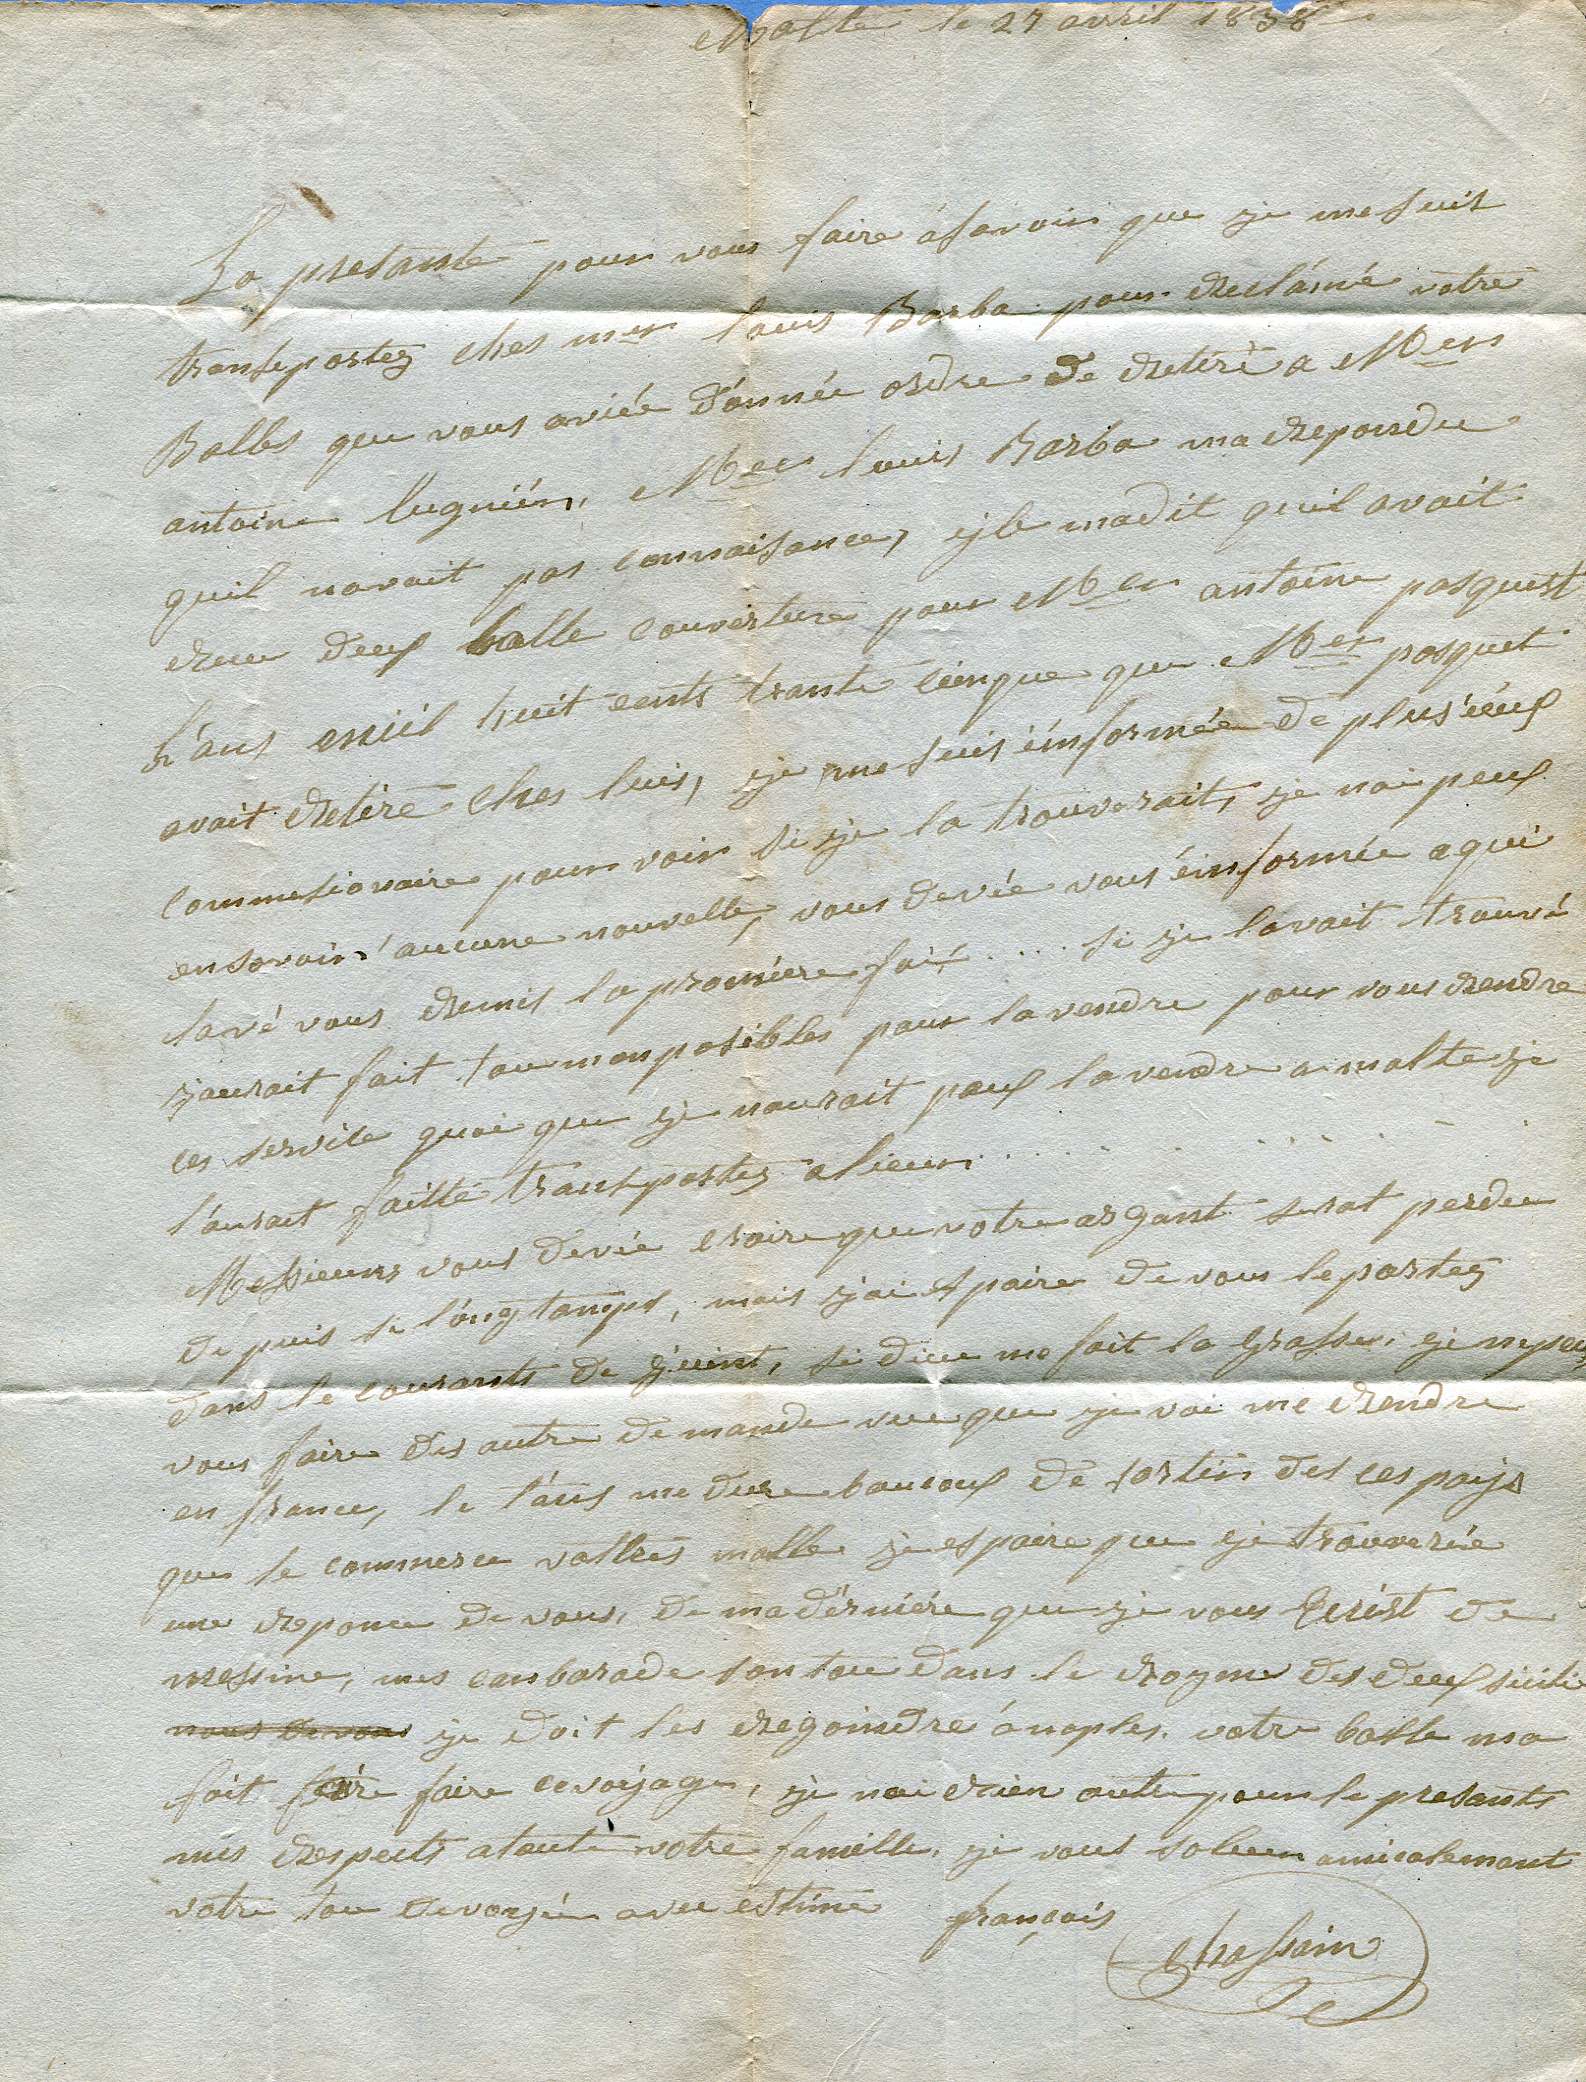 Malte le 27 avril 1838
La presante pour vous faire asavoir que je me suis
transportez ches mer louis Barba pour reclamé votre
Balles que vous aviée donnée ordre de retiré a Mer
antoine lugnién, Mer louis Barba ma repondu
quil navait pas connaisance, ejle madit quil avait
reeu deux balle couverture pour Mer antoine pasquest
L'ans miil huit cents trante cinque que Mer pasquet
avait retiré ches luis, je me suis einformée de plusieux
commesionaire pour voir si je la trouverait, je nai peux
en savoir aucune nouvelle, vous devée vous einformée a qui
lavé vous remis la promiere foit .... si je lavait trouvé
j'aurait fait tou mon posibles pour la vendre pour vous rendre
ces servise quoi que je naurait paux la vendre a malte je
l'aurait faitte transportez alieur.........
Messieurs vous devée croire que votre argant serat perdu
de puis si longtamps, mais j'ai espoire de vous le portez
dans le courants de juint, si dieu me fait la grasse, je ne peux
vous faire des autre demande vue que je vai me rendre
en france, le tans me dure baucoux de sortir des ces pays
que le commerce vattres malle je espoire que je trouverée
une reponce de vous, de ma derniére que je vous Ecrist de
messine, mes canbarade son tou dans le royme des deux sicile
nous devons je doit les regoindre á naples. votre balle ma
fait faire faire ce voijage, je nai rien autre pour le presants
mes respects a toute votre famille, je vous salue amicalemant
votre tou devoyée avec estime françois
Chassain